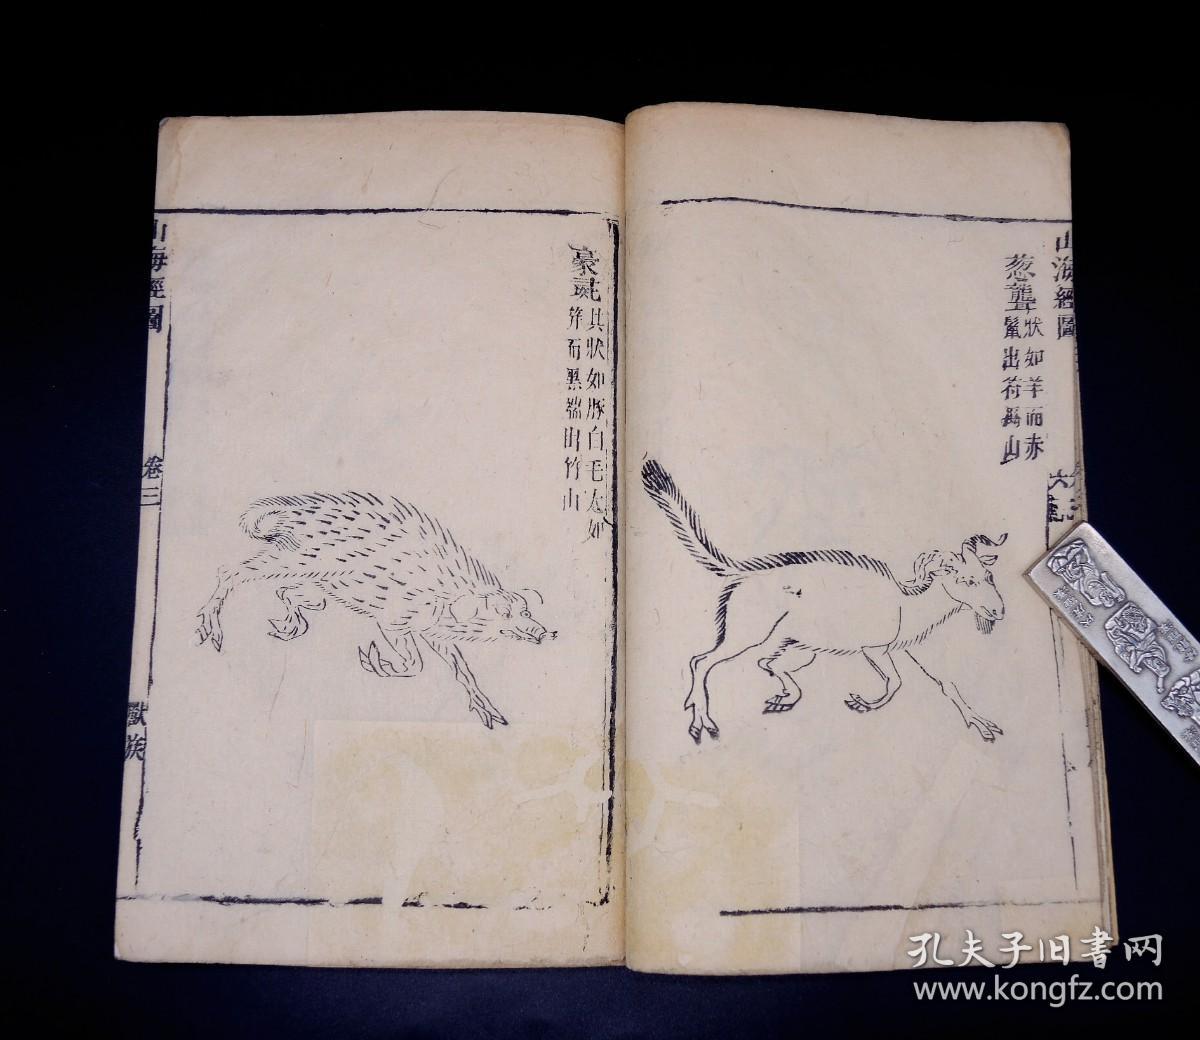 山海經圖
葱聾
狀如羊而赤
鬣出符禺山
豪彘
其狀如豚白毛大如
笄而黑端出竹山
山海經圖
卷三
獸族
孔夫子旧书网
www.kongfz.com